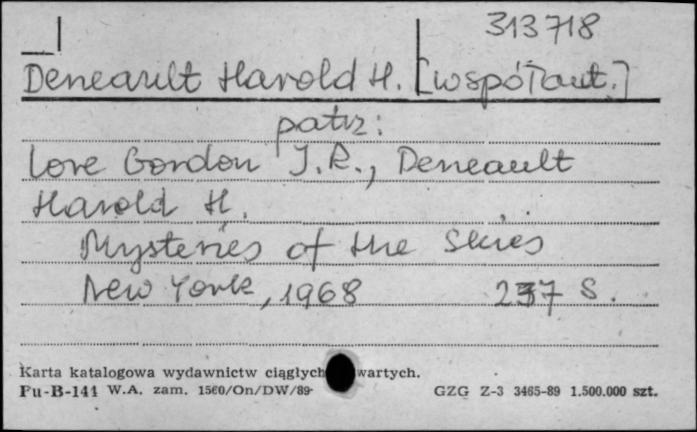 313718
Deneault Harold H. [współaut.]
patrz:
Love Gordon I.R., Deneault
Harold H.
Mysteries of the Skies
New York, 1968 237 S.
Karta katalogowa wydawnictw ciągłych wartych.
Pu-B-141 W.A. zam. 1560/On/DW/89 GZG Z-3 3465-89 1.500.000 szt.